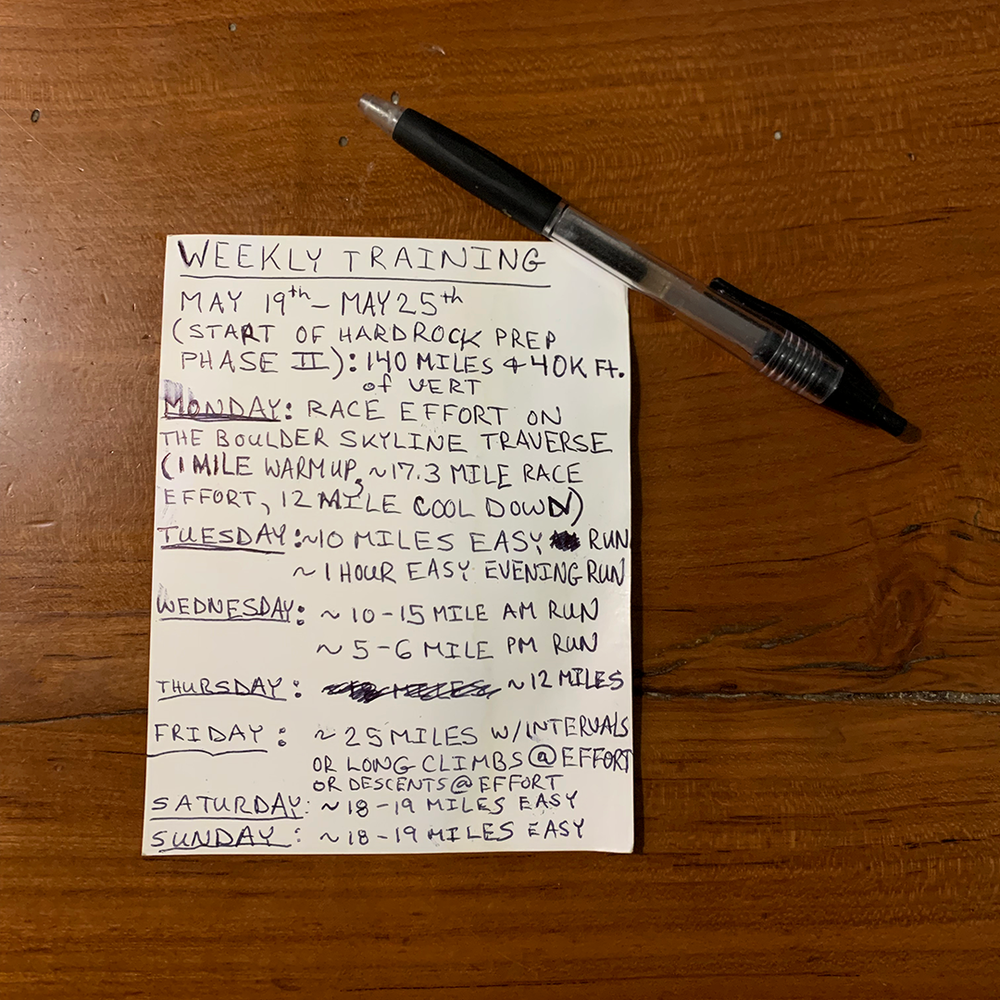 WEEKLY TRAINING
MAY 19th - MAY 25th
(START OF HARDROCK PREP
PHASE II): 140 MILES & 40K FT.
of VERT
MONDAY: RACE EFFORT ON
THE BOULDER SKYLINE TRAVERSE
(1 MILE WARM UP, ~17.3 MILE RACE
EFFORT, 12 MILE COOL DOWN)
TUESDAY: ~10 MILES EASY RUN
~ 1 HOUR EASY EVENING RUN
WEDNESDAY: ~ 10-15 MILE AM RUN
~ 5-6 MILE PM RUN
THURSDAY: ~12 MILES
FRIDAY: ~ 25 MILES W/INTERVALS
OR LONG CLIMBS @ EFFORT
OR DESCENTS @ EFFORT
SATURDAY: ~ 18-19 MILES EASY
SUNDAY: ~ 18-19 MILES EASY